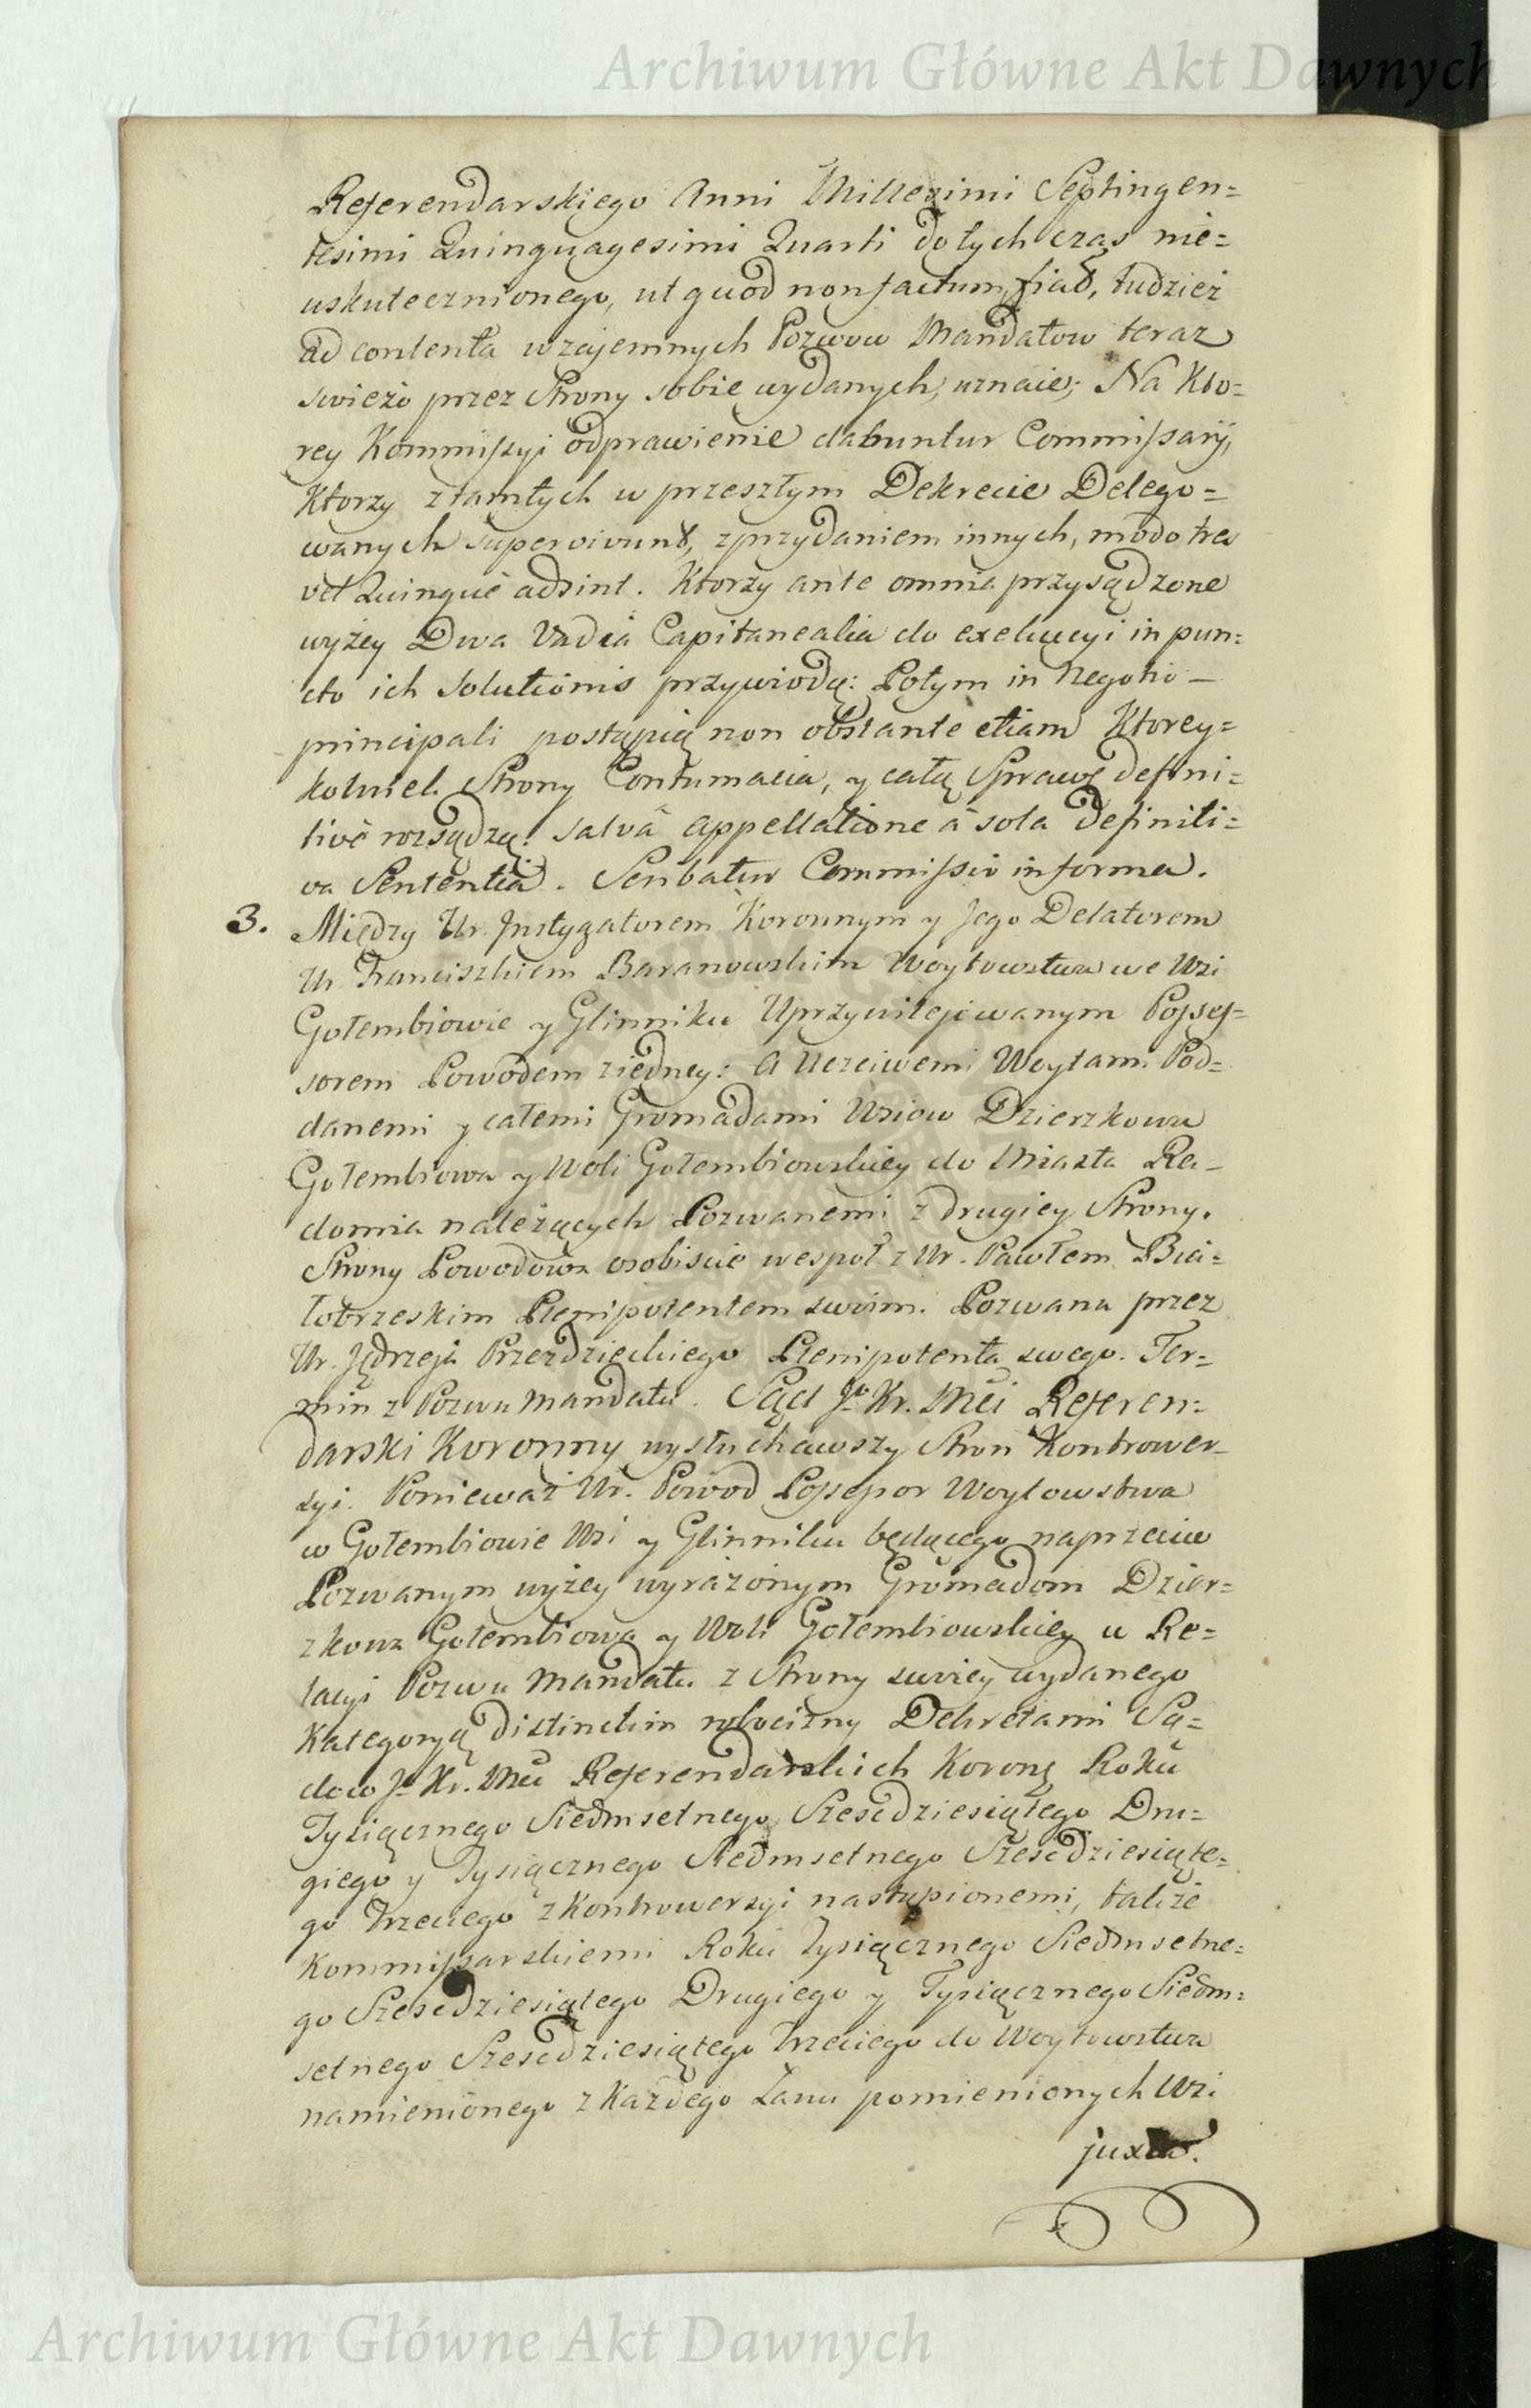 Archiwum Główne Akt Dawnych
Referendarskiego Anni Millesimi Septingen=
tesimi Quinquagesimi Quarti dotych czas nie=
uskutecznionego, ut quod non factum, fiat, tudzież
ad contenta wzajemnych Pozwow Mandatow teraz
swieżo przez Strony sobie wydanych, uznaie; Na Kto=
rey Kommissyi odprawienie dabuntur Commissarij,
Ktorzy z tamtych w przeszłym Dekrecie Delego=
wanych supervivunt, z przydaniem innych, modo tres
vel Quinque adsint. Ktorzy ante omnia przysądzone
wyżey Dwa Vadia Capitanealia do exekucyi in pun=
cto ich Solutionis przywiodą: Potym in Negotio –
principali postąpią non obstante etiam Ktorey=
kolwiek Strony Contumacia, y całą Sprawę defini=
tivè rozsądzą: salvâ Appellatione à sola definiti=
va Sententia. Scribatur Commissio in forma.
3. Między Ur. Instygatorem Koronnym y Jego Delatorem
Ur. Franciszkiem Baranowskim Woytowstwa we Wsi
Gołembiowie y Glinniku Uprzywilejowanym Possess=
sorem Powodem z iedney: A Uczciwemi Woytami Pod=
danemi y całemi Gromadami Wsiow Dzierzkowa
Gołembiowa y Woli Gołembiowskiey do Miasta Ra=
domia należących Pozwanemi z drugiey Strony.
Strony Powodowa osobiscie wespoł z Ur. Pawłem Bia=
łobrzeskim Plenipotentem swoim. Pozwana przez
Ur. Jędrzeja Przezdzieckiego Plenipotenta swego. Ter=
min z Pozwu Mandatu. Sąd Jo Kr. Mci Referen=
darski Koronny wysłuchawszy Stron Kontrower=
syi. Ponieważ Ur. Powod Possessor Woytowstwa
w Gołembiowie Wsi y Glinniku będącego naprzeciw
Pozwanym wyżey wyrażonym Gromadom Dzier=
zkowa Gołembiowa y Woli Gołembiowskiey w Re=
lacyi Pozwu Mandatu z Strony swoiey wydanego
Kategoryą distinctim robocizny Dekretami Są=
dow Jo Kr. Mci Referendarskich Koronę Roku
Tysiącznego Siedmsetnego Szescdziesiątego Dru=
giego y Tysiącznego Siedmsetnego Szescdziesiąte=
go Trzeciego z Kontrowersyi nastąpionemi, także
Kommissarskiemi Roku Tysiącznego Siedmsetne=
go Szescdziesiątego Drugiego y Tysiącznego Siedm=
setnego Szescdziesiątego Trzeciego do Woytowstwa
namienionego z Każdego Łanu pomienionych Wsi
juxta.
Archiwum Główne Akt Dawnych